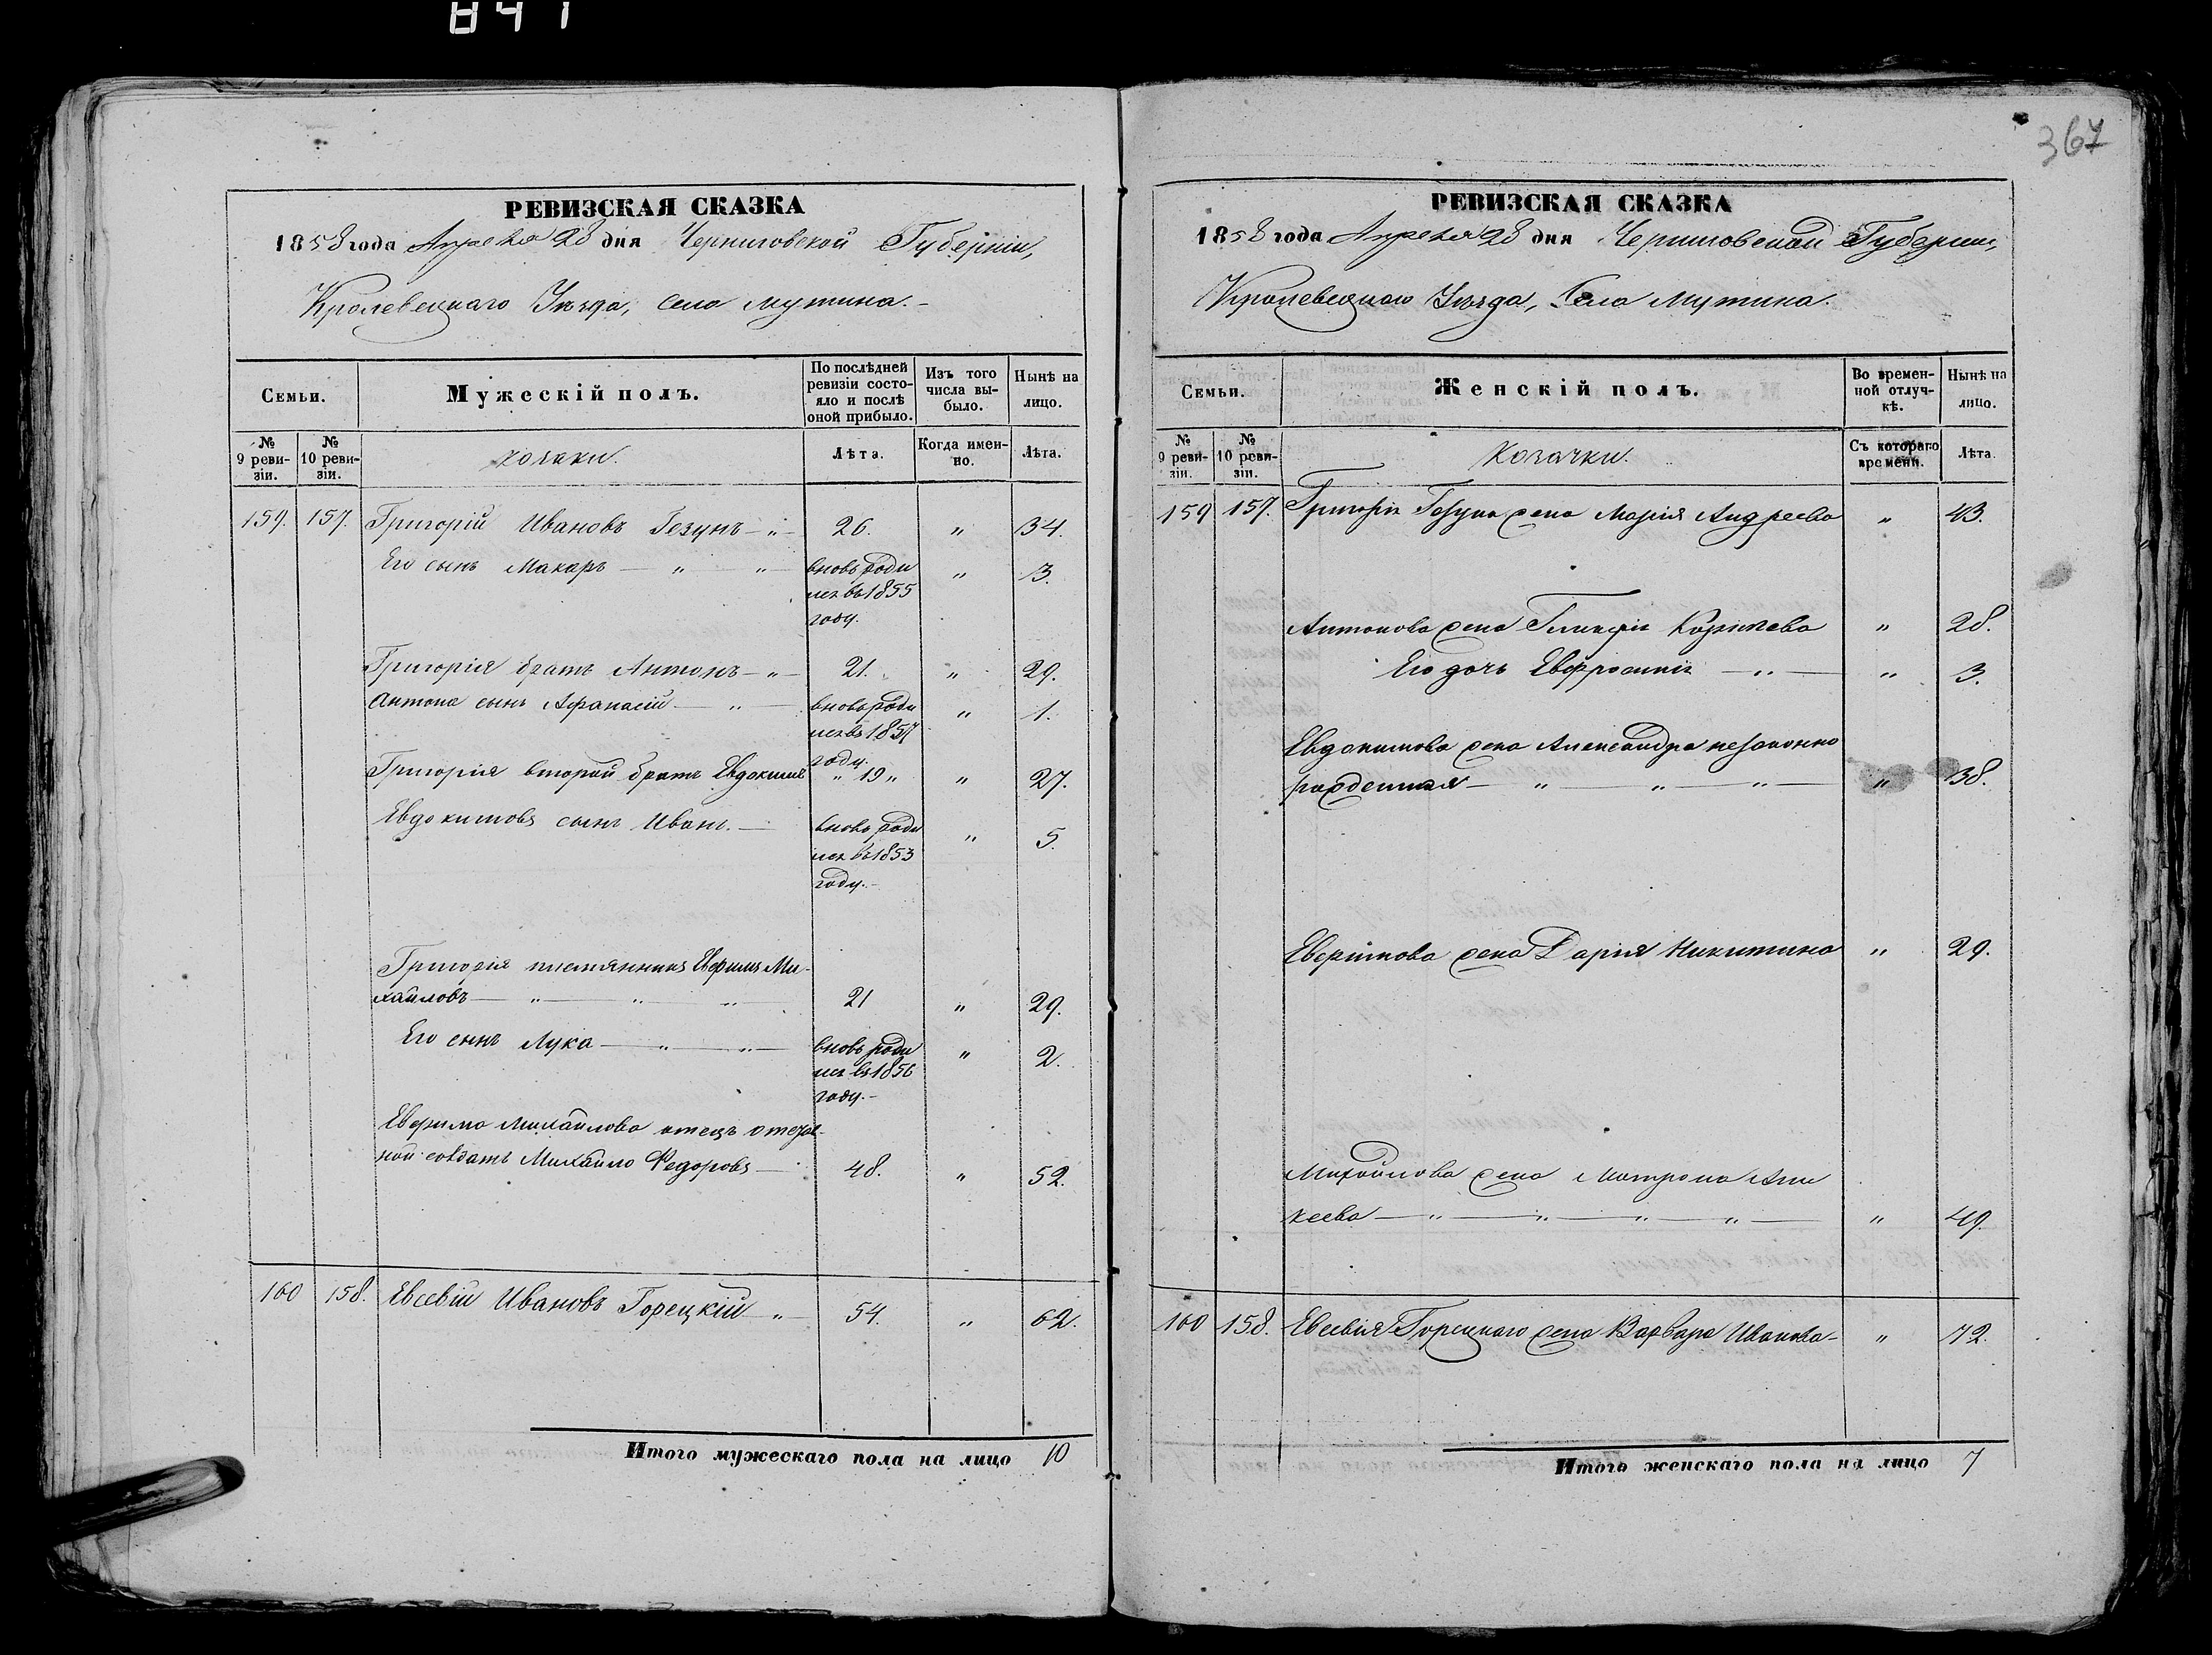 841
367
РЕВИЗСКАЯ СКАЗКА
1858 года Апреля 28 дня Черниговской Губерніи,
Кролевецкаго Уѣзда, села Мутина.-
Семьи.
Мужескій полъ.
По послѣдней ревизіи состояло и послѣ оной прибыло.
Изъ того числа выбыло.
Нынѣ на лицо.
№ 9 ревизіи.
№ 10 ревизіи.
козаки.
Лѣта.
Когда именно.
Лѣта.
159. 157. Григорій Ивановъ Гезунъ — " — 26. " 34.
Его сынъ Макаръ — " — " — вновь роди " 3.
лся въ 1855
году.
Григорія братъ Антонъ — " — 21. " 29.
Антона сынъ Афанасій — " — вновь роди " 1.
лся въ 1857
году.
Григорія второй братъ Евдокимъ " 19 " " 27.
Евдокимовъ сынъ Иванъ. — вновь роди " 5.
лся въ 1853
году.-
Григорія племянникъ Ефимъ Ми-
хайловъ — " — " — " — 21 " 29.
Его сынъ Лука — " — " — вновь роди " 2.
лся въ 1856
году.-
Михайлова отецъ
солдатъ Михайло Федоровъ — 48. " 52.
160 158. Евсевій Ивановъ Горецкій — " — 54. " 62.
Итого мужескаго пола на лицо 10
РЕВИЗСКАЯ СКАЗКА
1858 года Апреля 28 дня Черниговской Губерніи,
Кролевецкаго Уѣзда, Села Мутина.
Семьи.
Женскій полъ.
Во временной отлучкѣ.
Нынѣ на лицо.
№ 9 ревизіи.
№ 10 ревизіи.
Козачки.
Съ котораго времени.
Лѣта.
159 157. Григорія Гезуна жена Марія Андреева " 43.
Антонова жена Гликерія Корнѣева " 28.
Его дочь Евфросинія — " — " 3.
Евдокимова жена Александра незаконно
рожденная — " — " — " — " 38.
жена Дарія Никитина " 29.
Михайлова жена Матрона Ани
кеева — " — " — " — " — " 49.
160 158. Евсевія Горецкаго жена Варвара Иванова - " 72.
Итого женскаго пола на лицо 7